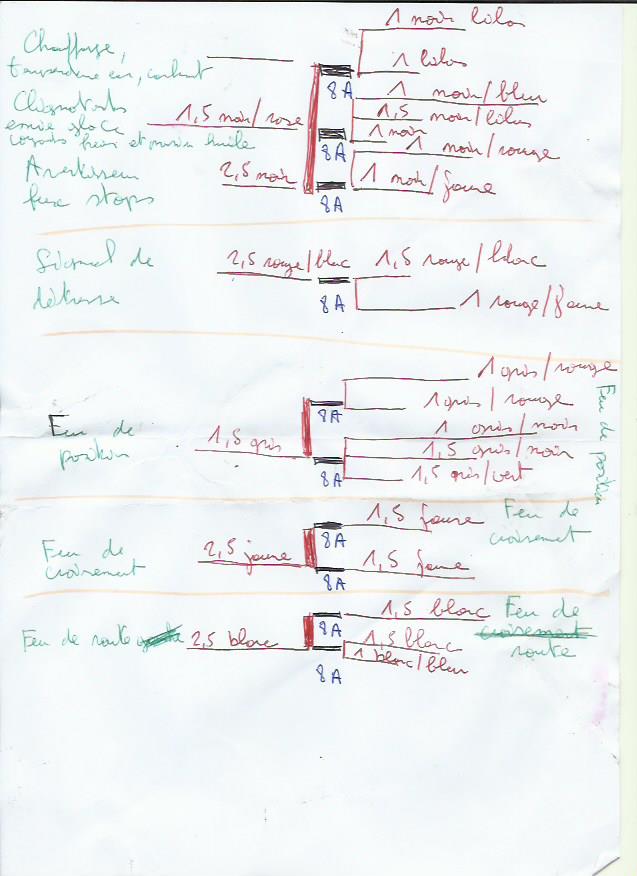 1 noir lilas
Chauffage,
1 lilas
température eau, carburant
8 A
1 noir/bleu
Clignotants
1,5 noir/rose
1,5 noir/lilas
essuie glace
1 noir
frein et huile
8 A
1 noir/rouge
Avertisseur
2,5 noir
1 noir/jaune
feux stops
8 A
Signal de
2,5 rouge/blanc
1,5 rouge/blanc
détresse
8 A
1 rouge/jaune
1 gris/rouge
8 A
1 gris/rouge
Feu de
1,5 gris
1 gris/noir
position
1,5 gris/noir
8 A
1,5 gris/vert
Feu de position
1,5 jaune
Feu de
croisement
8 A
Feu de
croisement
2,5 jaune
1,5 jaune
8 A
1,5 blanc
Feu de
8 A
croisement
Feu de route
2,5 blanc
1,5 blanc
route
1 blanc/bleu
8 A